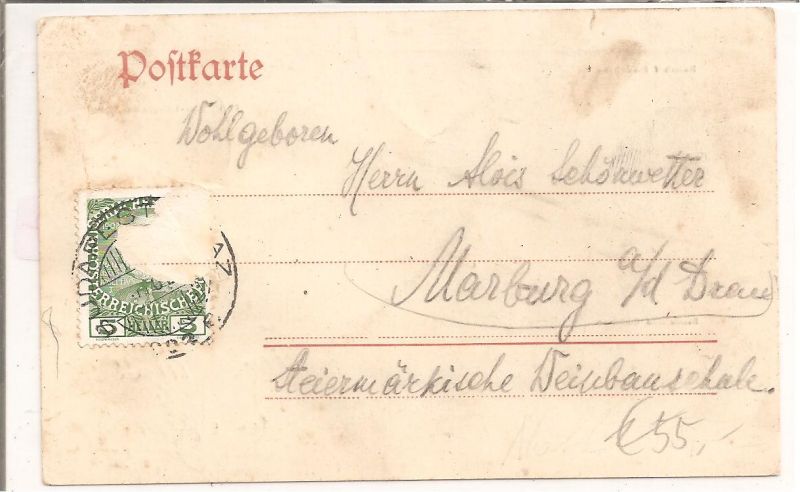 Postkarte
Wohlgeboren
Herrn Alois Schönwetter
Marburg a/d Drau
Steiermärkische Weinbauschule.
€ 55,-
ERREICHISCHE
5 HELLER 5